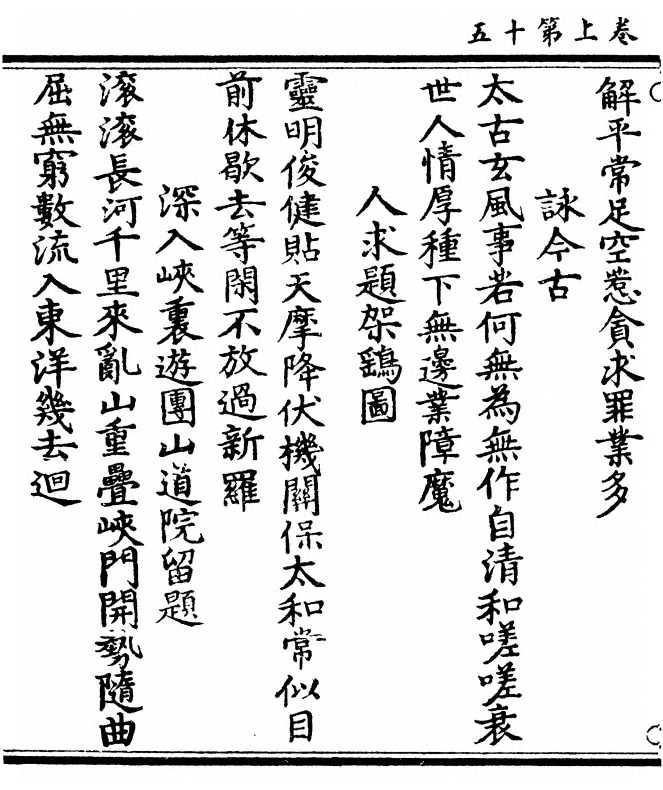 卷上第十五
解平常足空惹貪求罪業多
詠今古
太古玄風事若何無為無作自清和嗟嗟衰
世人情厚種下無邊業障魔
人求題架鷂圖
靈明俊健貼天摩降伏機關保太和常似目
前休歇去等閑不放過新羅
深入峽裏遊團山道院留題
滚滚長河千里來亂山重疊峽門開勢隨曲
屈無窮數流入東洋幾去迴